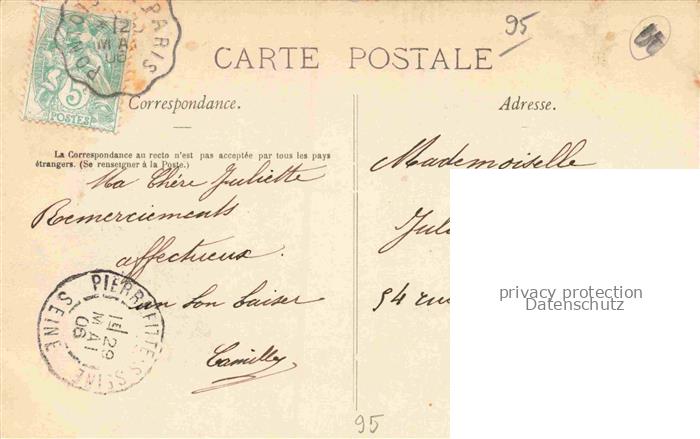 95
CARTE POSTALE
5c
POSTES
PONTOISE PARIS
MAI
06
Correspondance.
La Correspondance au recto n'est pas acceptée par tous les pays
étrangers. (Se renseigner à la Poste.)
Ma Chére Juliette
Remerciements
affectueux.
un bon baiser
Camille
PIERREFITTE-S-SEINE
SEINE
29
MAI
06
Adresse.
Mademoiselle
Jul
54 rue
privacy protection
Datenschutz
95